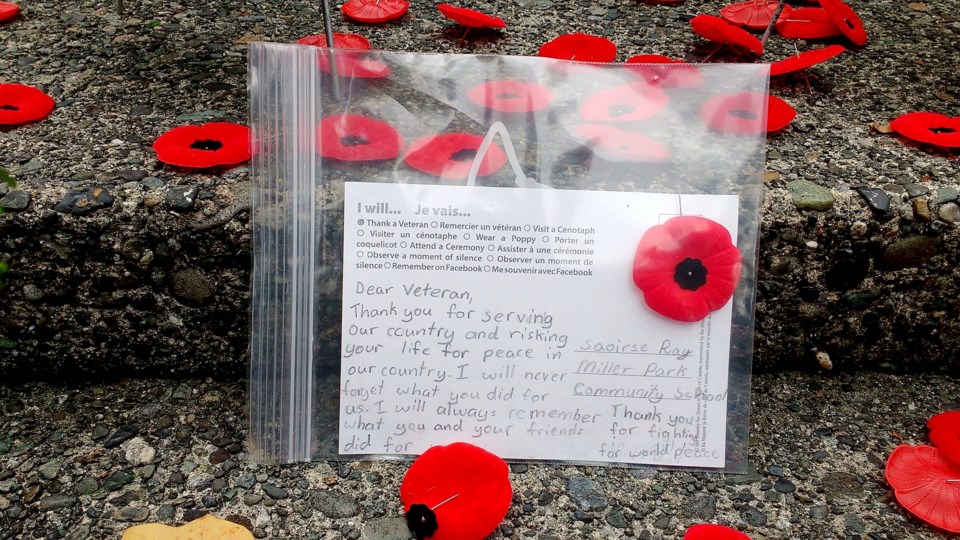 I will... Je vais...
Thank a Veteran O Remercier un vétéran O Visit a Cenotaph
O Visiter un cénotaphe O Wear a Poppy O Porter un
coquelicot O Attend a Ceremony O Assister à une cérémonie
O Observe a moment of silence O Observer un moment de
silence O Remember on Facebook O Me souvenir avec Facebook
Dear Veteran,
Thank you for serving
our country and risking
your life for peace in
our country. I will never
forget what you did for
us. I will always remember
what you and your friends
did for
Saoirse Ray
Miller Park
Community School
Thank you
for fighting
for world peace